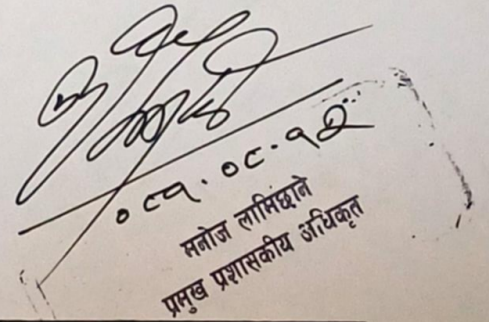 ०८१.०८.१२
मनोज लामिछाने
प्रमुख प्रशासकीय अधिकृत